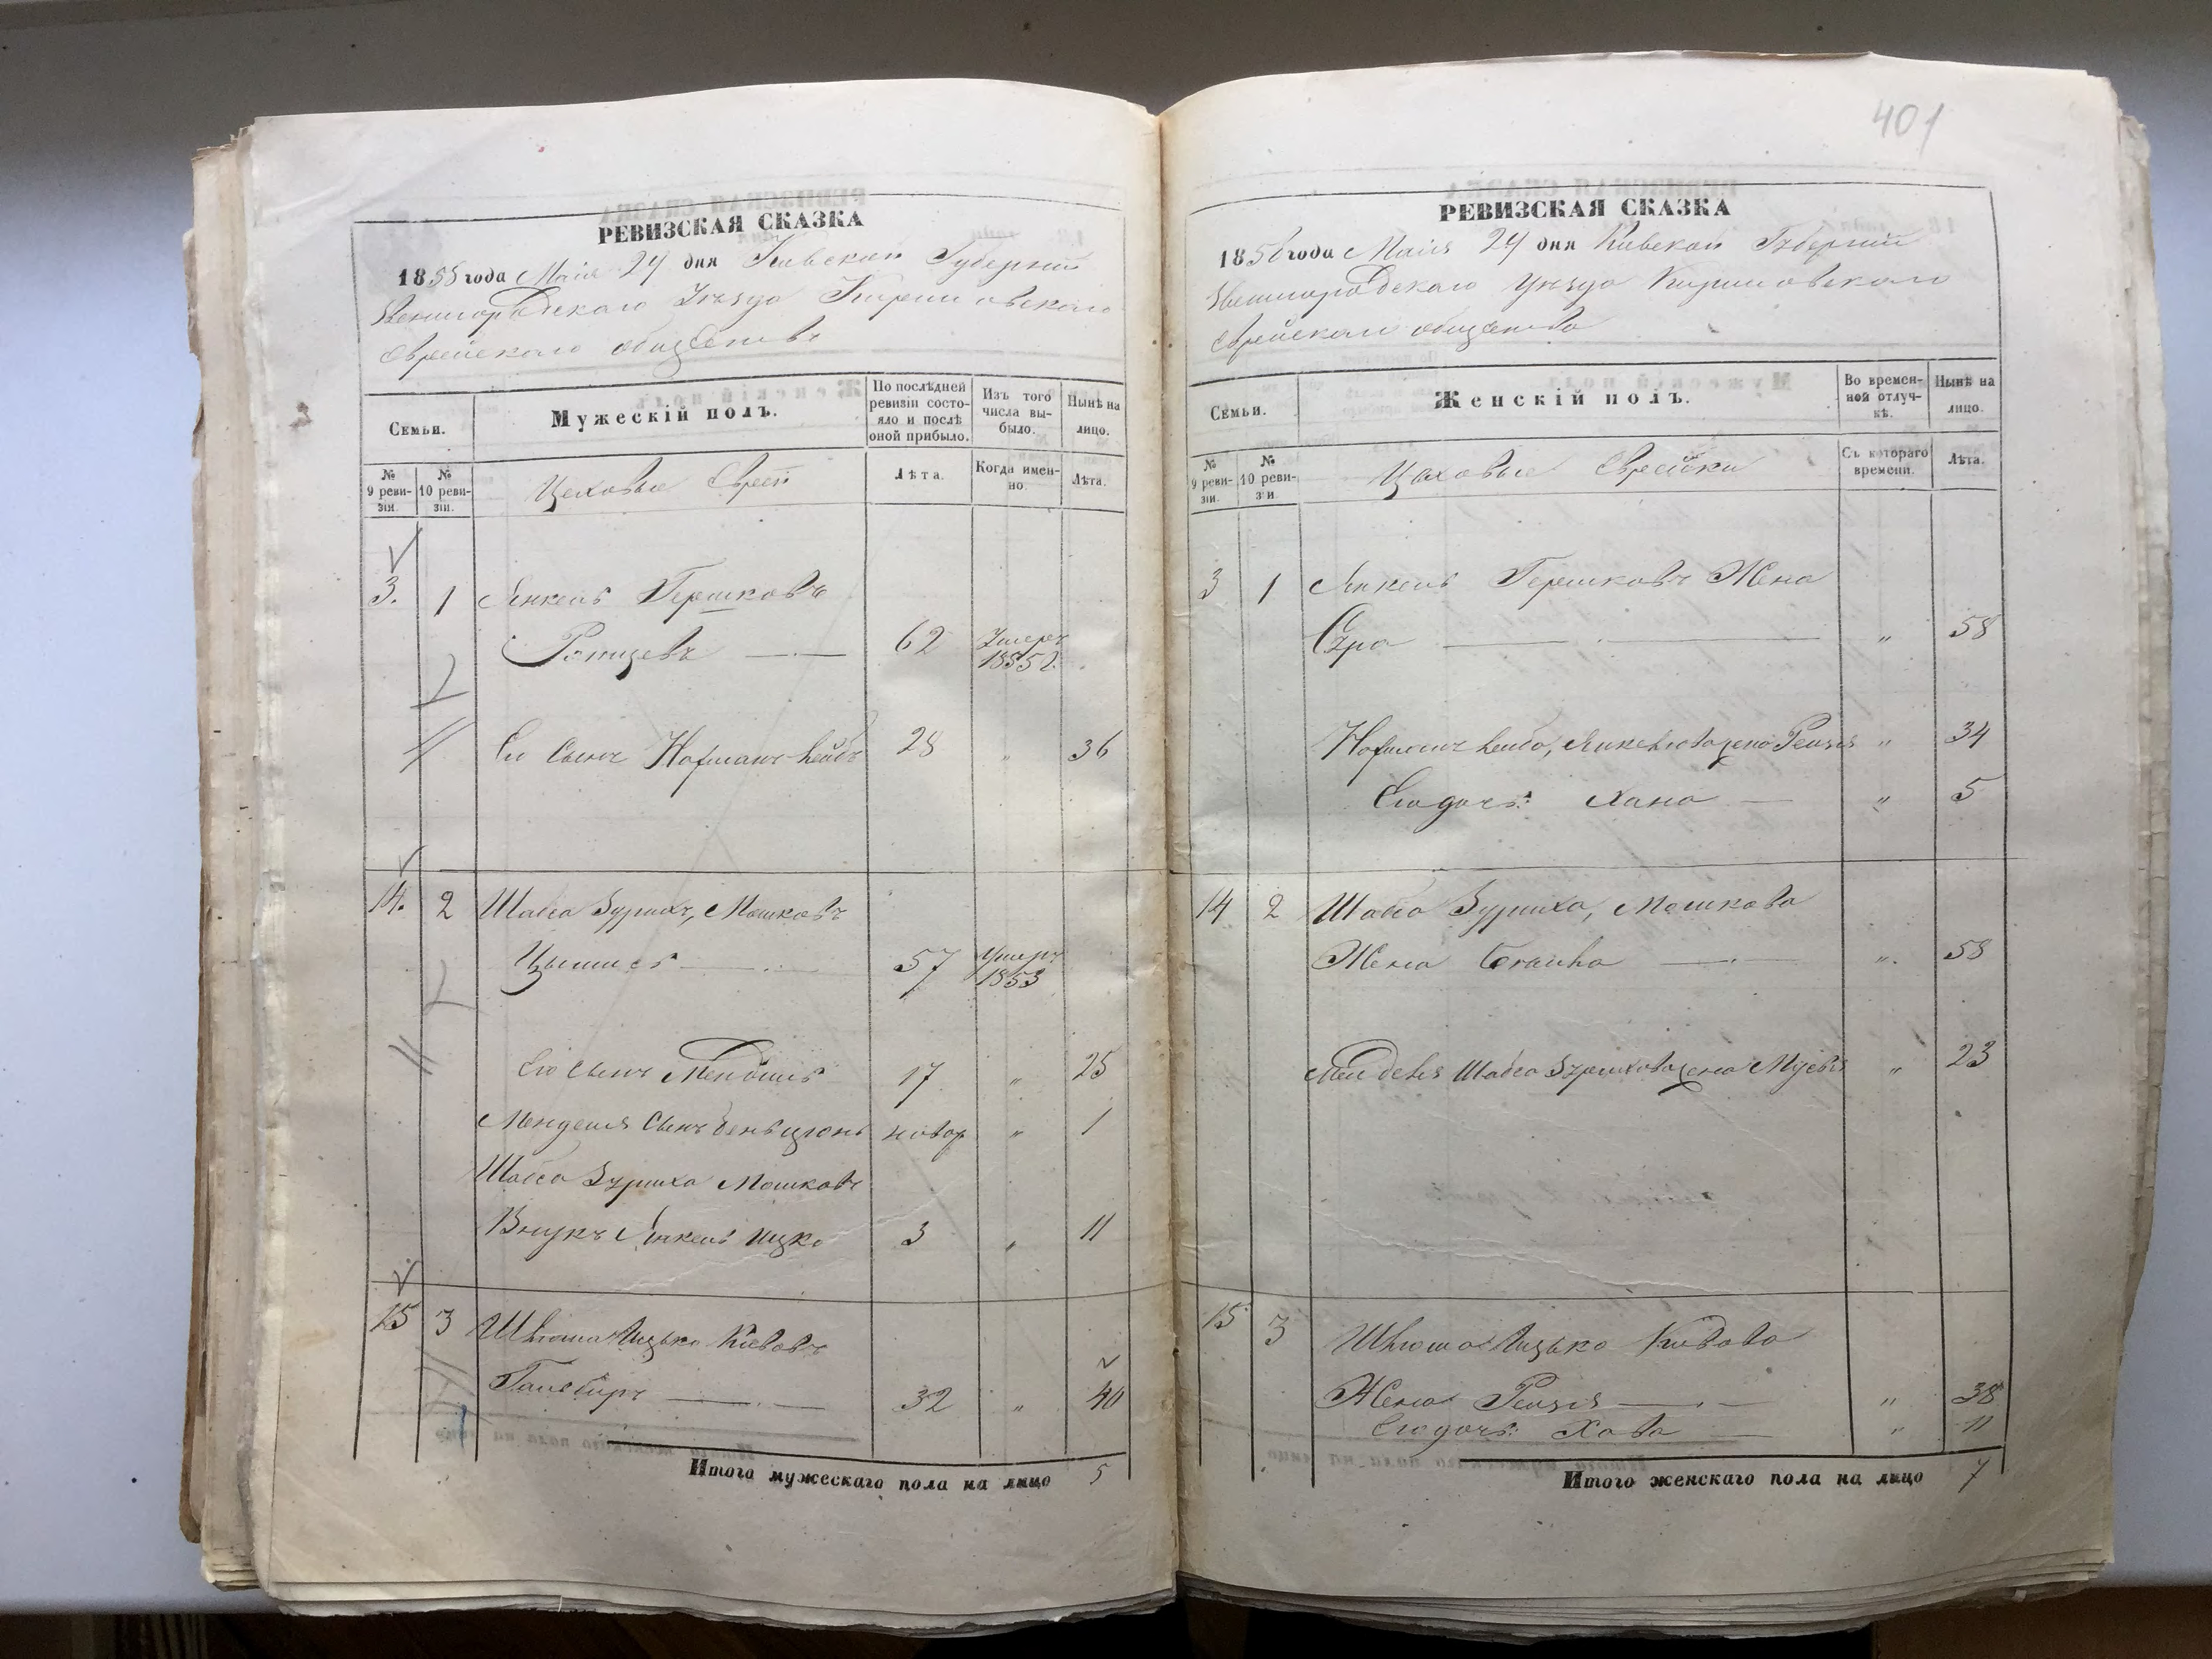 401
РЕВИЗСКАЯ СКАЗКА
1858 года Мая 24 дня Киевской Губернии
Звенигородскаго Уѣзда
Еврейскаго общества
Семьи.
Мужескій полъ.
По послѣдней ревизіи состояло и послѣ оной прибыло.
Изъ того числа выбыло.
Нынѣ на лицо.
№ 9 ревизіи.
№ 10 ревизіи.
Цеховые Евреи
Лѣта.
Когда именно.
Лѣта.
3. 1 Янкель Гершковъ
62 Умеръ 1855 г.
Его Сынъ Нафманъ Лейбъ 28 " 36
14. 2 Шабса Зурихъ, Мошковъ
57 Умеръ 1853
Его Сынъ Мендель 17 " 25
Менделя Сынъ Беньціонъ новор " 1
Шабса Зуриха Мошкова
Внукъ Янкель Ицко 3 " 11
15 3 Шлиома Ицько
32 " 40
Итого мужескаго пола на лицо 5
РЕВИЗСКАЯ СКАЗКА
1858 года Мая 24 дня Киевской Губерніи
Звенигородскаго Уѣзда
Еврейскаго общества
Семьи.
Женскій полъ.
Во временной отлучкѣ.
Нынѣ на лицо.
№ 9 ревизіи.
№ 10 ревизіи.
Цеховые Еврейки
Съ котораго времени.
Лѣта.
3 1 Янкель Гершковъ Жена
Сура " 58
Нафманъ Лейба, Янкелева жена Рейзя " 34
Его дочь: Хана " 5
14 2 Шабса Зуриха, Мошкова
Жена " 58
Менделя Шабса Зурихова жена " 23
15 3 Шлиома Ицько
Жена Рейзя " 38
Его дочь: Хава " 11
Итого женскаго пола на лицо 7